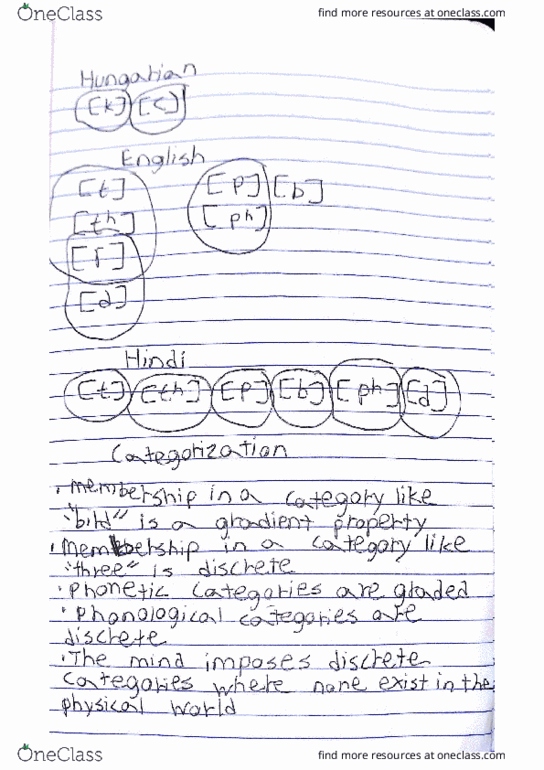 OneClass find more resources at oneclass.com
Hungarian
[k] [c]
English
[t] [p] [b]
[th] [ph]
[ɾ]
[d]
Hindi
[t] [th] [p] [b] [ph] [d]
Categorization
· membership in a category like
"bird" is a gradient property
· membership in a category like
"three" is discrete
· phonetic categories are graded
· phonological categories are
discrete
· The mind imposes discrete
categories where none exist in the
physical world
OneClass find more resources at oneclass.com